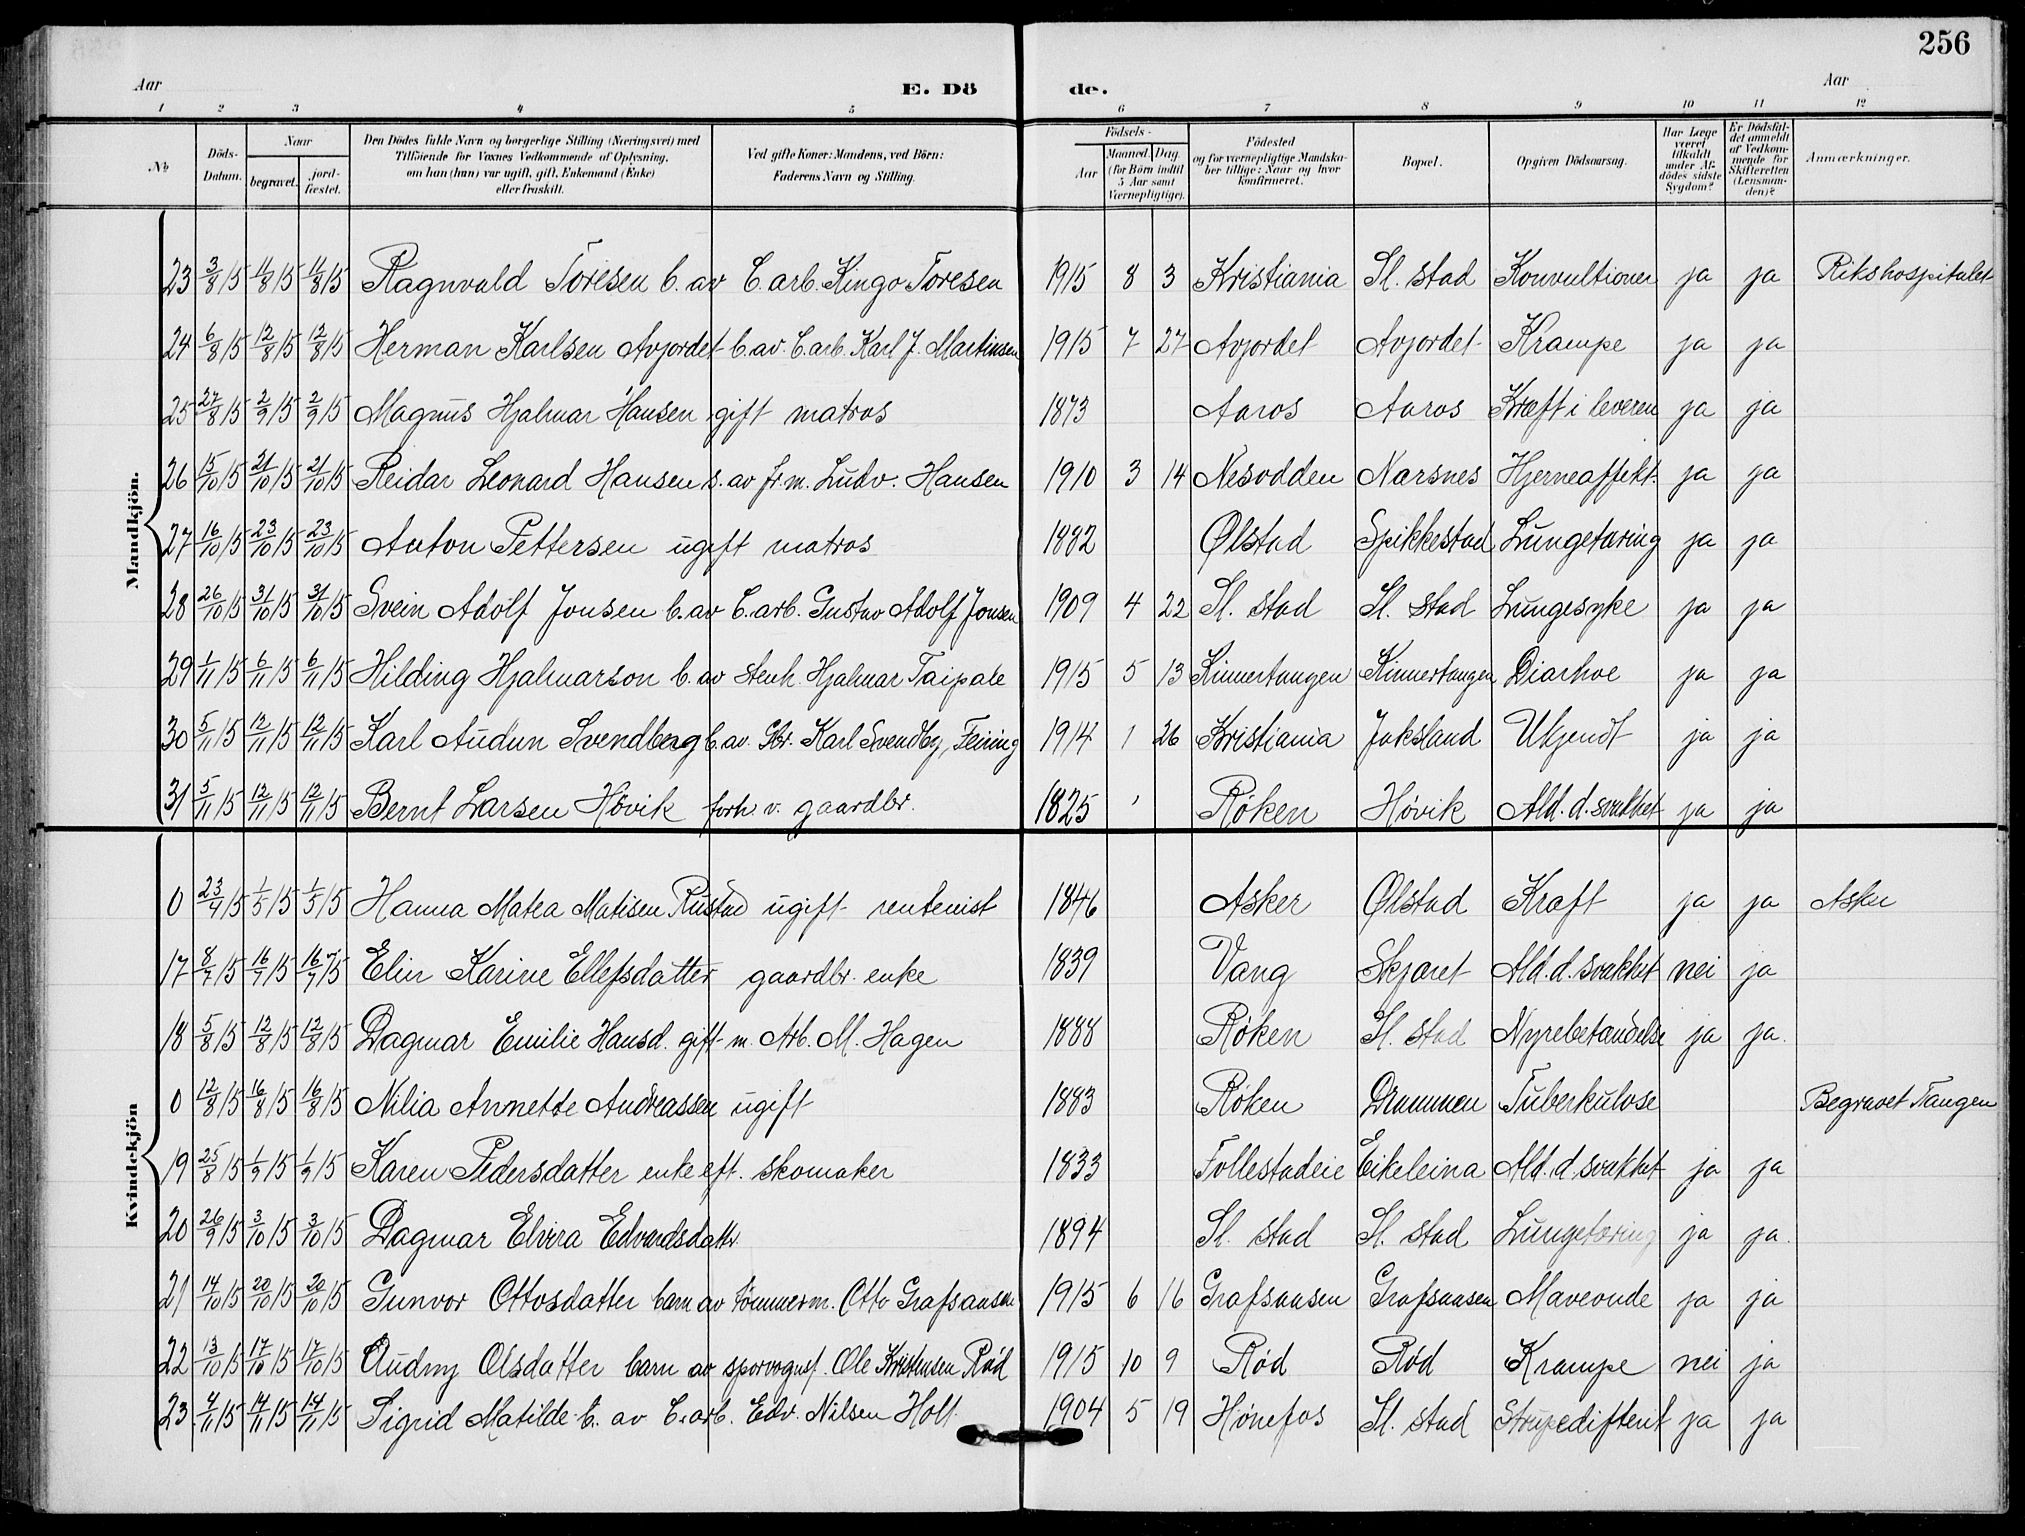 256
Aar E. Dö de. Aar
1 2 3 4 5 6 7 8 9 10 11 12
No
Döds-Datum.
Naar
begravet.
jord-fæstet.
Den Dödes fulde Navn og borgerlige Stilling (Næringsvei) med
Tilföiende for Voxnes Vedkommende af Oplysning,
om han (hun) var ugift, gift, Enkemand (Enke)
eller fraskilt.
Ved gifte Koner: Mandens, ved Börn:
Faderens Navn og Stilling.
Födsels-
Aar
Maaned. Dag.
(for Börn indtil
5 Aar samt
Værnepligtige).
Födested
og for værnepligtige Mandska-
ber tillige: Naar og hvor
konfirmeret.
Bopæl.
Opgiven Dödsaarsag.
Har Læge
været
tilkaldt
under Af-
dödes sidste
Sygdom?
Er Dödsfal-
det anmeldt
af Vedkom-
mende for
Skifteretten
(Lensman-
den)?
Anmærkninger.
Mandkjön.
23 3/8 15 11/8 15 11/8 15 Ragnvald Toresen b. av C. arb. Kingo Toresen 1915 8 3 Kristiania Sl. stad Konvultioner ja ja Rikshospitalet
24 6/8 15 12/8 15 12/8 15 Herman Karlsen Avjordet b. av. C. arb. Karl J. Martinsen 1915 7 27 Avjordet Avjordet Krampe ja ja
25 27/8 15 2/9 15 2/9 15 Magnus Hjalmar Hansen gift matros 1873 Aaros Aaros Kræft i leveren ja ja
26 15/10 15 21/10 15 21/10 15 Reidar Leonard Hansen s. av fr. m. Ludv. Hansen 1910 3 14 Nesodden Nærsnes Hjerneaffekt. ja ja
27 16/10 15 23/10 15 23/10 15 Anton Pettersen ugift matros 1882 Ølstad Spikkestad Lungetæring ja ja
28 26/10 15 31/10 15 31/10 15 Svein Adolf Jonsen b. av C. arb. Gustav Adolf Jonsen 1909 4 22 Sl. stad Sl. stad Lungesyke ja ja
29 1/11 15 6/11 15 6/11 15 Hilding Hjalmarson b. av stenh. Hjalmar Taipale 1915 5 13 Kinnertangen Kinnertangen Diarhoe ja ja
30 5/11 15 12/11 15 12/11 15 Karl Audun Svendberg b. av. Gbr. Karl Svendby, Feiring 1914 1 26 Kristiania Jaksland Ukjendt ja ja
31 5/11 15 12/11 15 12/11 15 Bernt Larsen Høvik forh. v. gaardbr. 1825 Røken Høvik Ald. d. svakhet ja ja
Kvindekjön
0 23/4 15 1/5 15 1/5 15 Hanna Matea Matisen Rustad ugift rentenist 1846 Asker Ølstad Kræft ja ja Asker
17 8/7 15 16/7 15 16/7 15 Elin Karine Ellefsdatter gaardbr. enke 1839 Vang Skjæret Ald. d. svakhet nei ja
18 5/8 15 12/8 15 12/8 15 Dagmar Emilie Hansd. gift m. Arb. M. Hagen 1888 Røken Sl. stad Nyrebetændelse ja ja.
0 12/8 15 16/8 15 16/8 15 Nilia Annette Andreassen ugift 1883 Røken Drammen Tuberkulose Begravet Tangen
19 25/8 15 1/9 15 1/9 15 Karen Pedersdatter enke eft. skomaker 1833 Follestadeie Eikeleina Ald. d. svakhet ja ja
20 26/9 15 3/10 15 3/10 15 Dagmar Elvira Edvardsdatter 1894 Sl. stad Sl. stad Lungetæring ja ja.
21 14/10 15 20/10 15 20/10 15 Gunvor Ottosdatter barn av tömmerm. Otto Grafsaasen 1915 6 16 Grafsaasen Grafsaasen Maveonde ja ja
22 13/10 15 17/10 15 17/10 15 Audny Olsdatter barn av sporvognsf. Ole Kristensen Rød 1915 10 9 Rød Rød Krampe nei ja
23 7/11 15 14/11 15 14/11 15 Sigrid Matilde b. av C. arb. Edv. Nilsen Holt 1904 5 19 Hønefos Sl. stad Strupedifterit ja ja